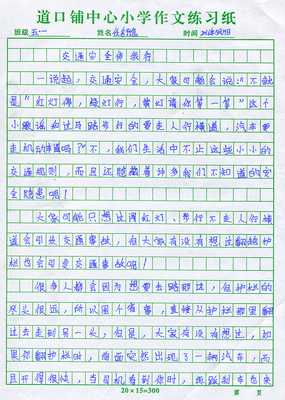 道口铺中心小学作文练习纸
班级 五.一 姓名 时间
交通安全伴我行
一说起，交通安全，大家可能会说：“不就
是“红灯停，绿灯行，黄灯请你等一等”这个
小歌谣和过马路步行的要走人行横道，汽车要
走机动车道吗？”不，我们生活中不止这些小小的
交通规则，而且还隐藏着许多我们不知道的安
全隐患呢！
大家可能只想过闯红灯、步行不走人行横
道会引发交通事故，但大家有没有想过翻越护
栏也会引发交通事故呢！
很多人都会因为想要去路那边，但护栏的
尽头很远，所以图个省事，直接从护栏那里翻
过去走到另一头，但是，大家有没有想过，如
果你翻护栏时，前面突然出现了一辆汽车，而
且开得很快，当司机看到你时，再踩刹车也来
20×15=300 第 页